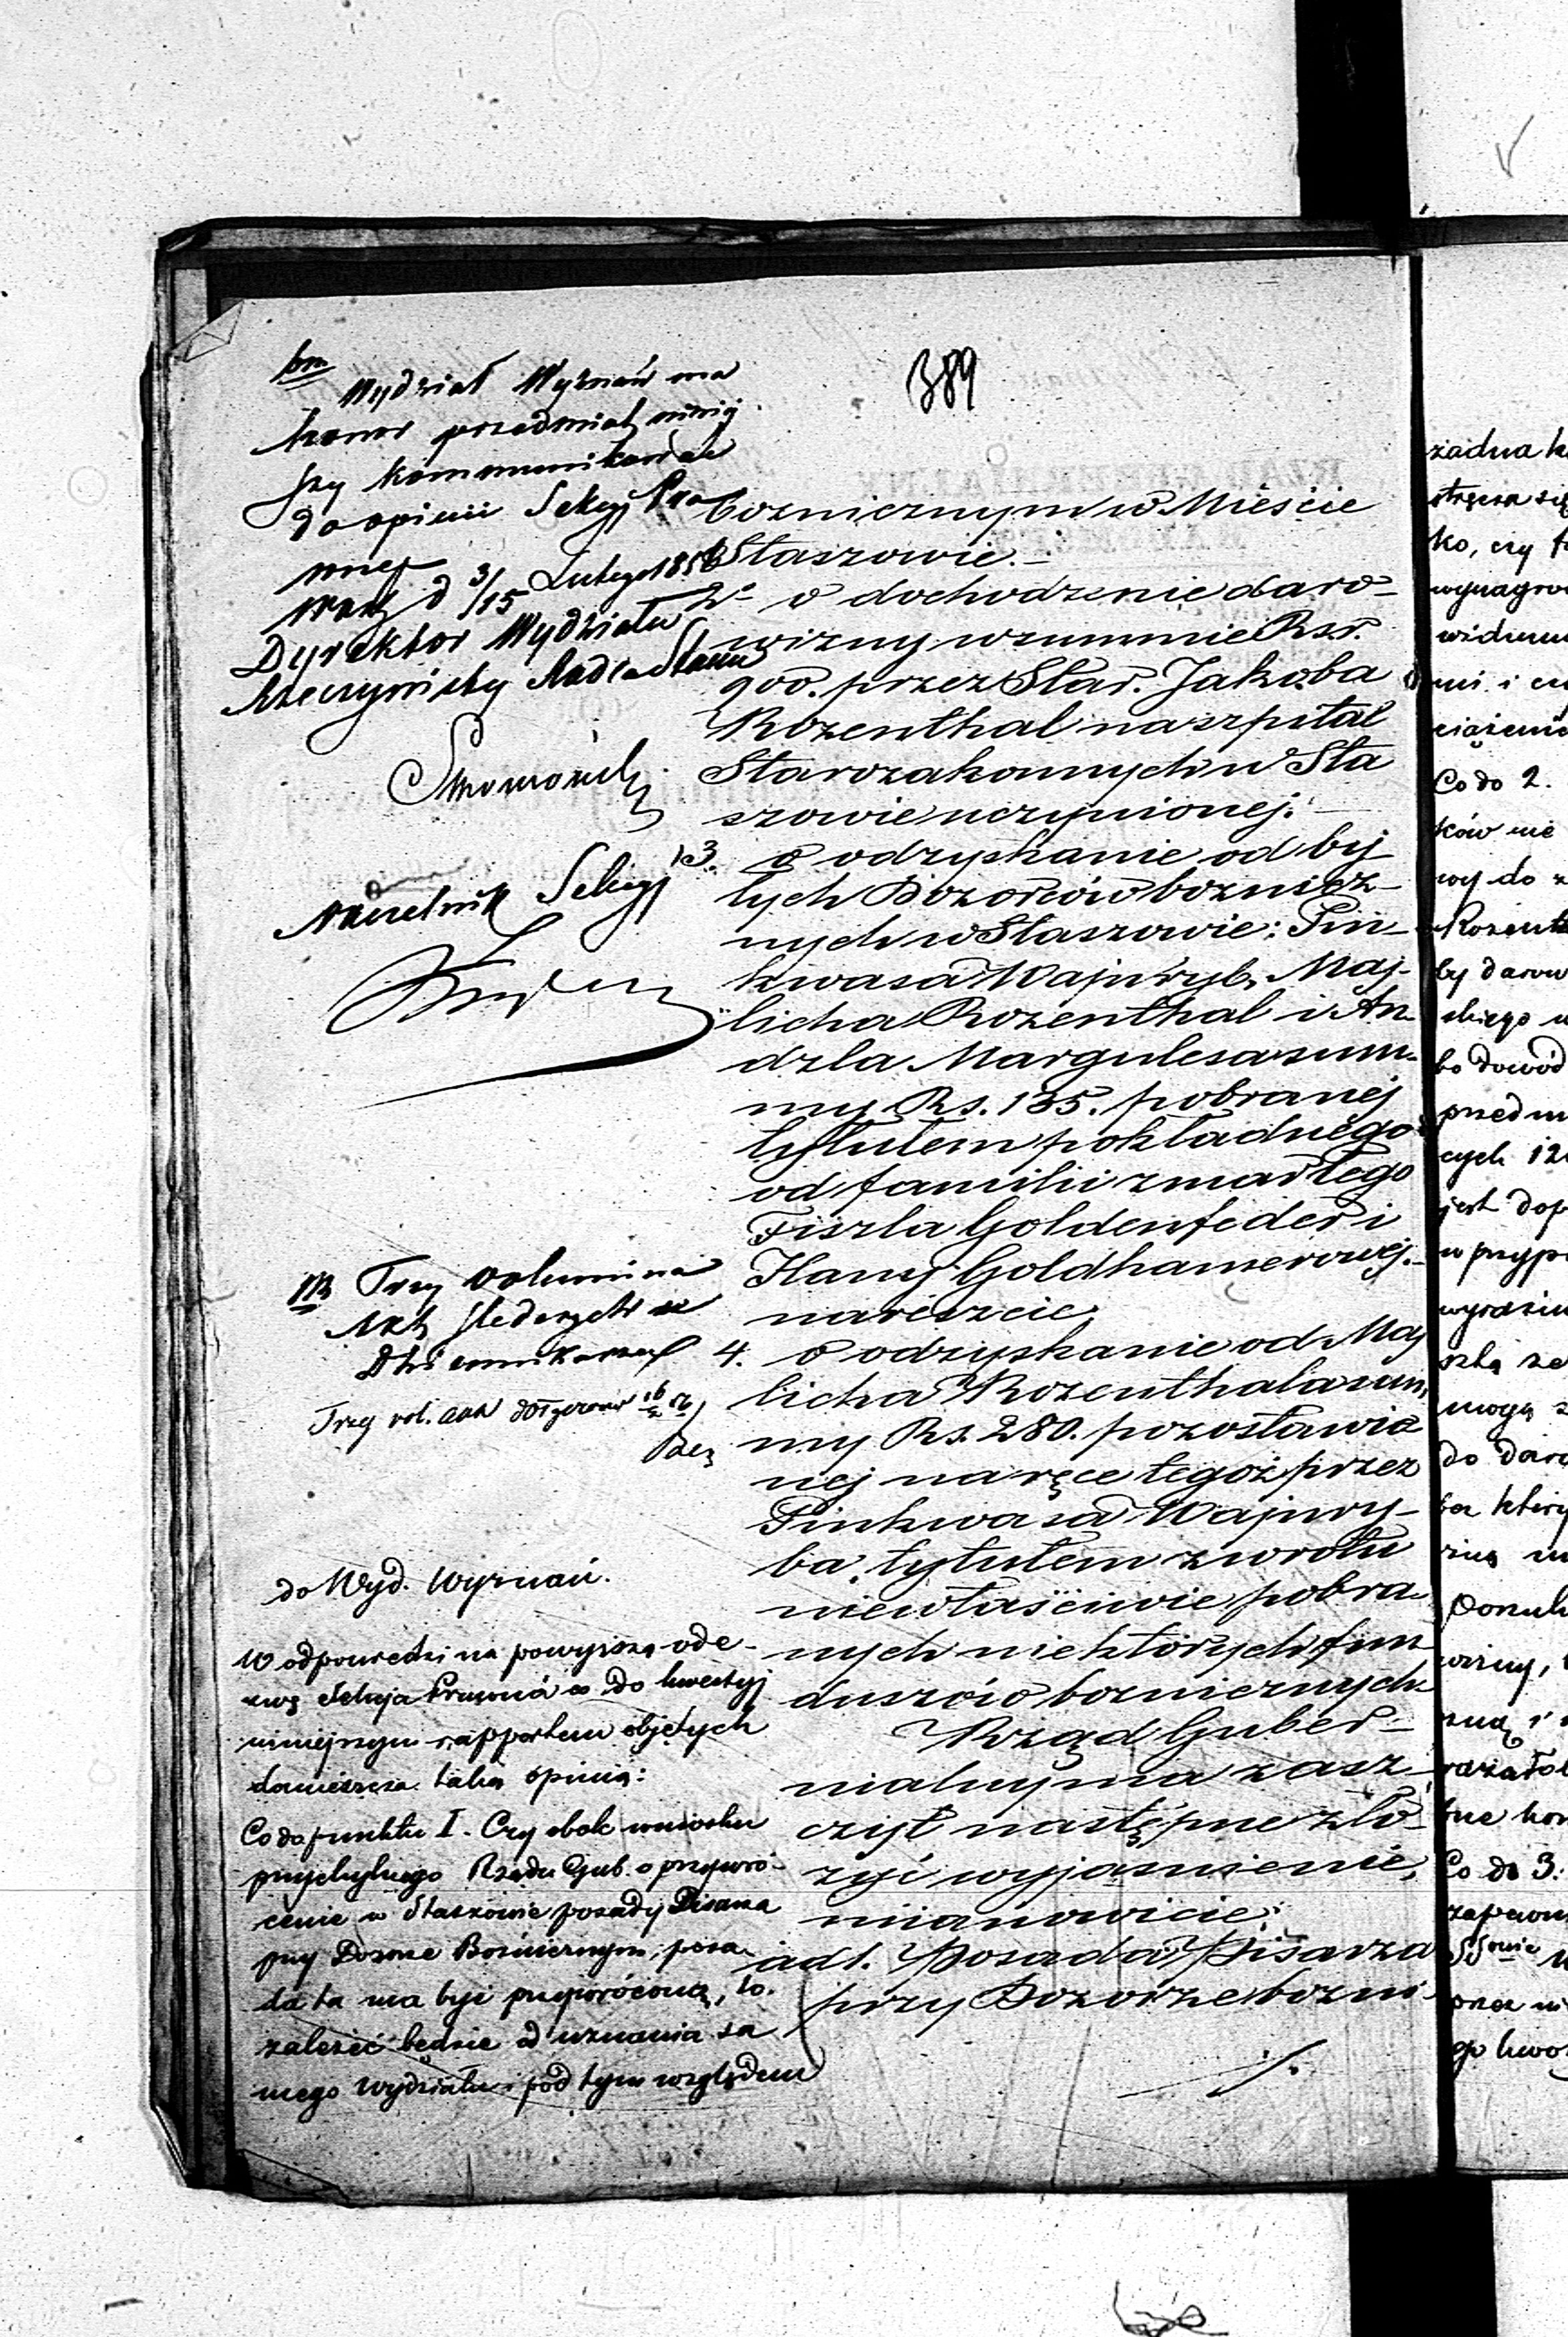 389
bm
Wydział Wyznań ma
honor przedmiot niniej
szy kommunikować
do opinii Sekcyi Pra
wnej
Warz d 3/15 Lutego 1856
Dyrektor Wydziału
Rzeczywisty Radca Stanu
Naczelnik Sekcyi
NB Trzy volumina
Akt śledczych w
Dzienniku
Trzy vol. akt dołączono
do Wyd. Wyznań.
W odpowiedzi na powyższą ode-
zwę Sekcja Prawna co do kwestyj
niniejszym rapportem objętych
zamieszcza taką opinią:
Co do punktu I. Czy obok wniosku
przychylnego Rządu Gub. o przywró-
cenie w Staszowie posady Pisarza
przy Dozorze Bożniczym, posa
da ta ma być przywróconą, to
zależeć będzie od uznania sa
mego Wydziału i pod tym względem
bożnicznym w Mieście
Staszowie.-
2. o dochodzenie daro-
wizny w summie Rsr.
900. przez Star. Jakoba
Rozenthal na szpital
Starozakonnych w Sta
szowie uczynionej.-
3. o odzyskanie od by
łych Dozorców bożnicz-
nych w Staszowie: Pin-
kwasa Wajnryb, Maj-
licha Rozenthal i An-
dzla Margulesa sum-
my Rs. 135. pobranej
tytułem pokładnego
od familii zmarłego
Fiszla Goldenfeder i
Hany Goldhamerowej.-
nareszcie,
4. o odzyskanie od Maj
licha Rozenthala sum
my Rs. 280. pozostawio
nej na ręce tegoż przez
Pinkwasa Wajnry-
ba, tytułem zwrotu
niewłaściwie pobra
nych niektórych fun
duszów bożnicznych
Rząd Guber-
nialny ma zasz-
czyt następne zło-
żyć wyjaśnienie,
mianowicie:
ad 1. Posada Pisarza
przy Dozorze bożni-
./.
żadna
ko, czy
Co do 2.
ków nie
wy do
by darow
bo dowód
przedm
cych
jest
w przyp
mogą
do
Co do 3.